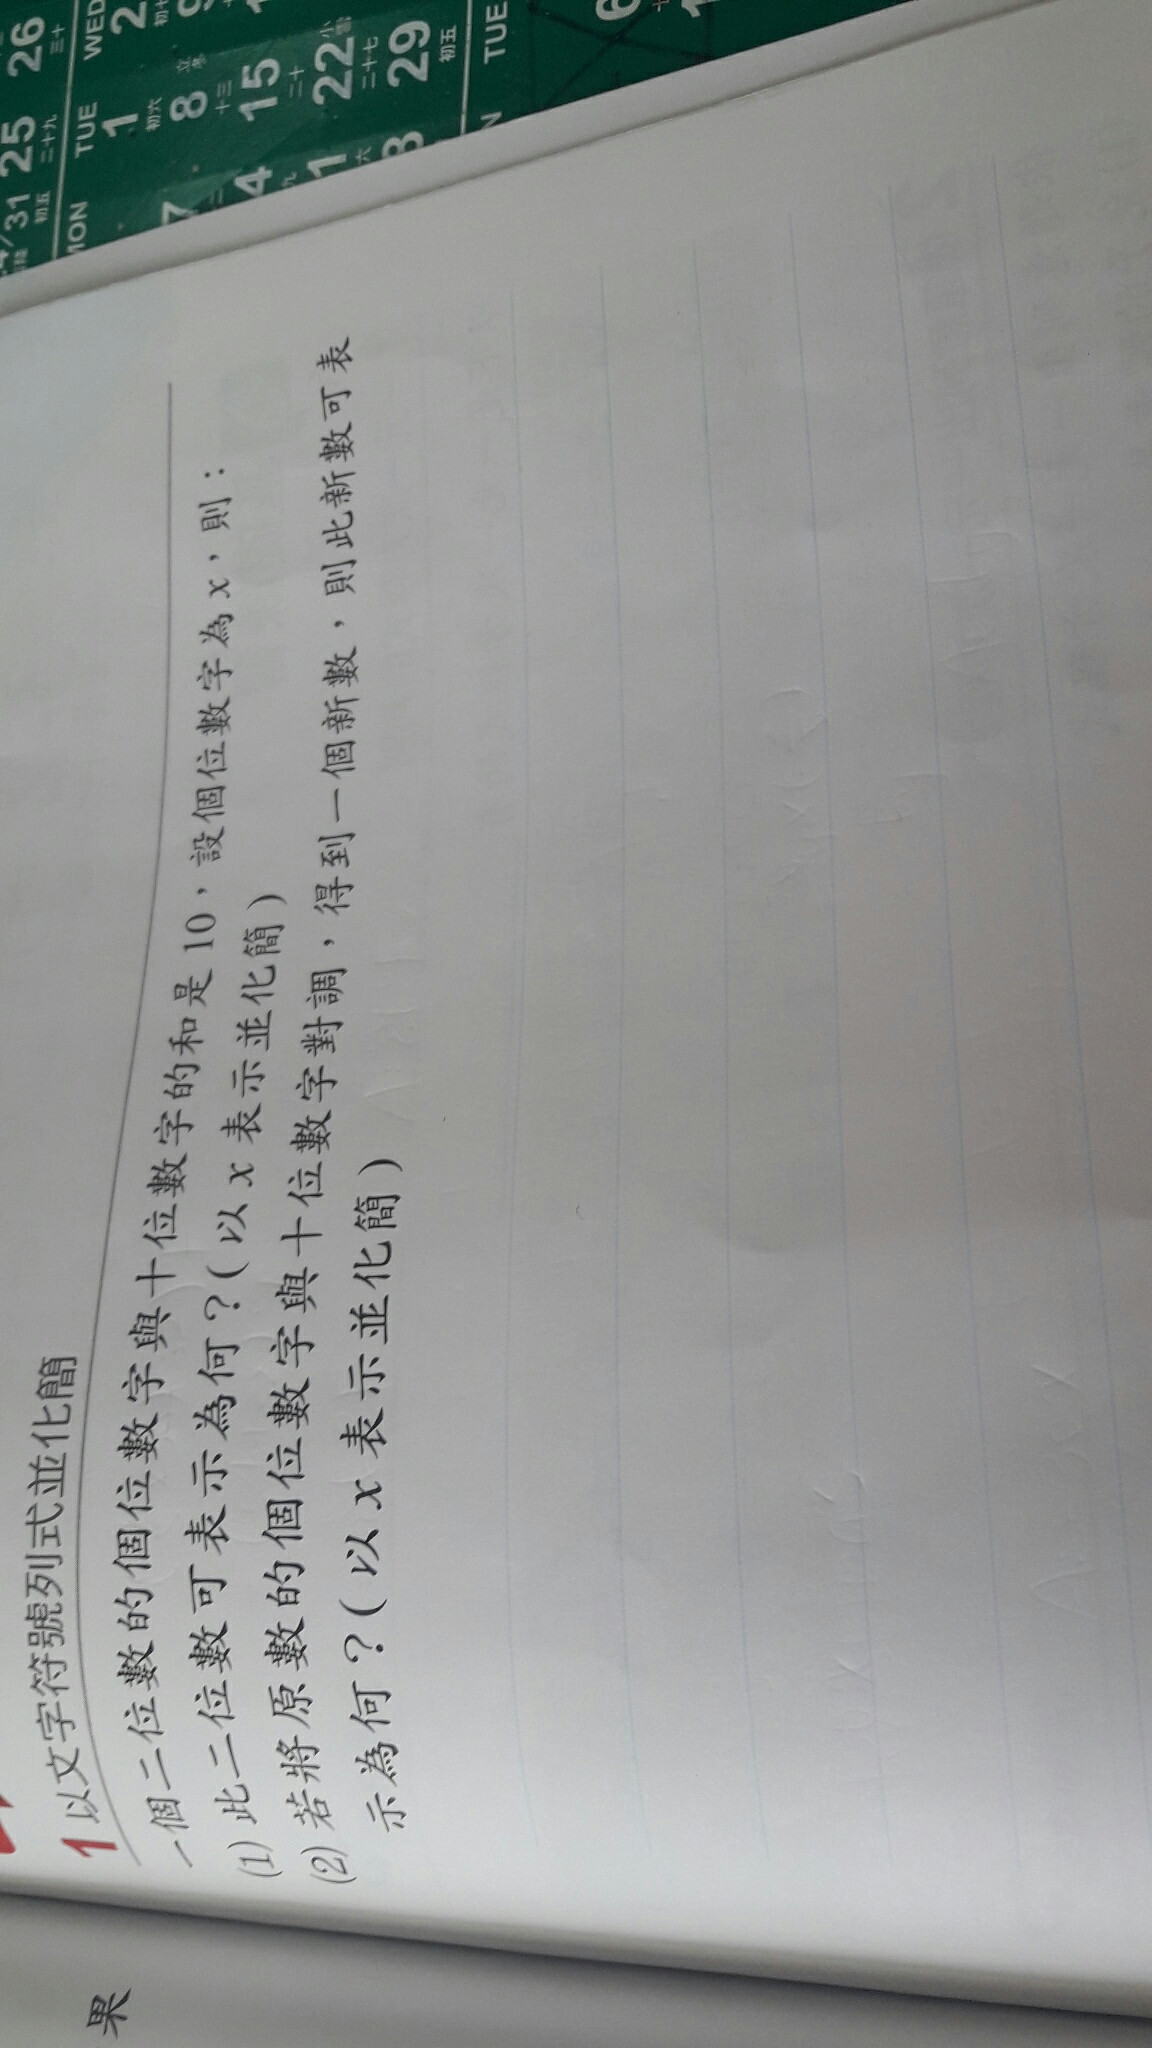 1 以文字符號列式並化簡
一個二位數的個位數字與十位數字的和是 10，設個位數字為 x，則：
(1) 此二位數可表示為何？( 以 x 表示並化簡 )
(2) 若將原數的個位數字與十位數字對調，得到一個新數，則此新數可表
示為何？( 以 x 表示並化簡 )
果
26
三十
WED
2
25
二十九
TUE
1
初六
8
立冬
十三
15
二十
22
小雪
二十七
29
初五
TUE
31
初五
MON
7
4
1
6